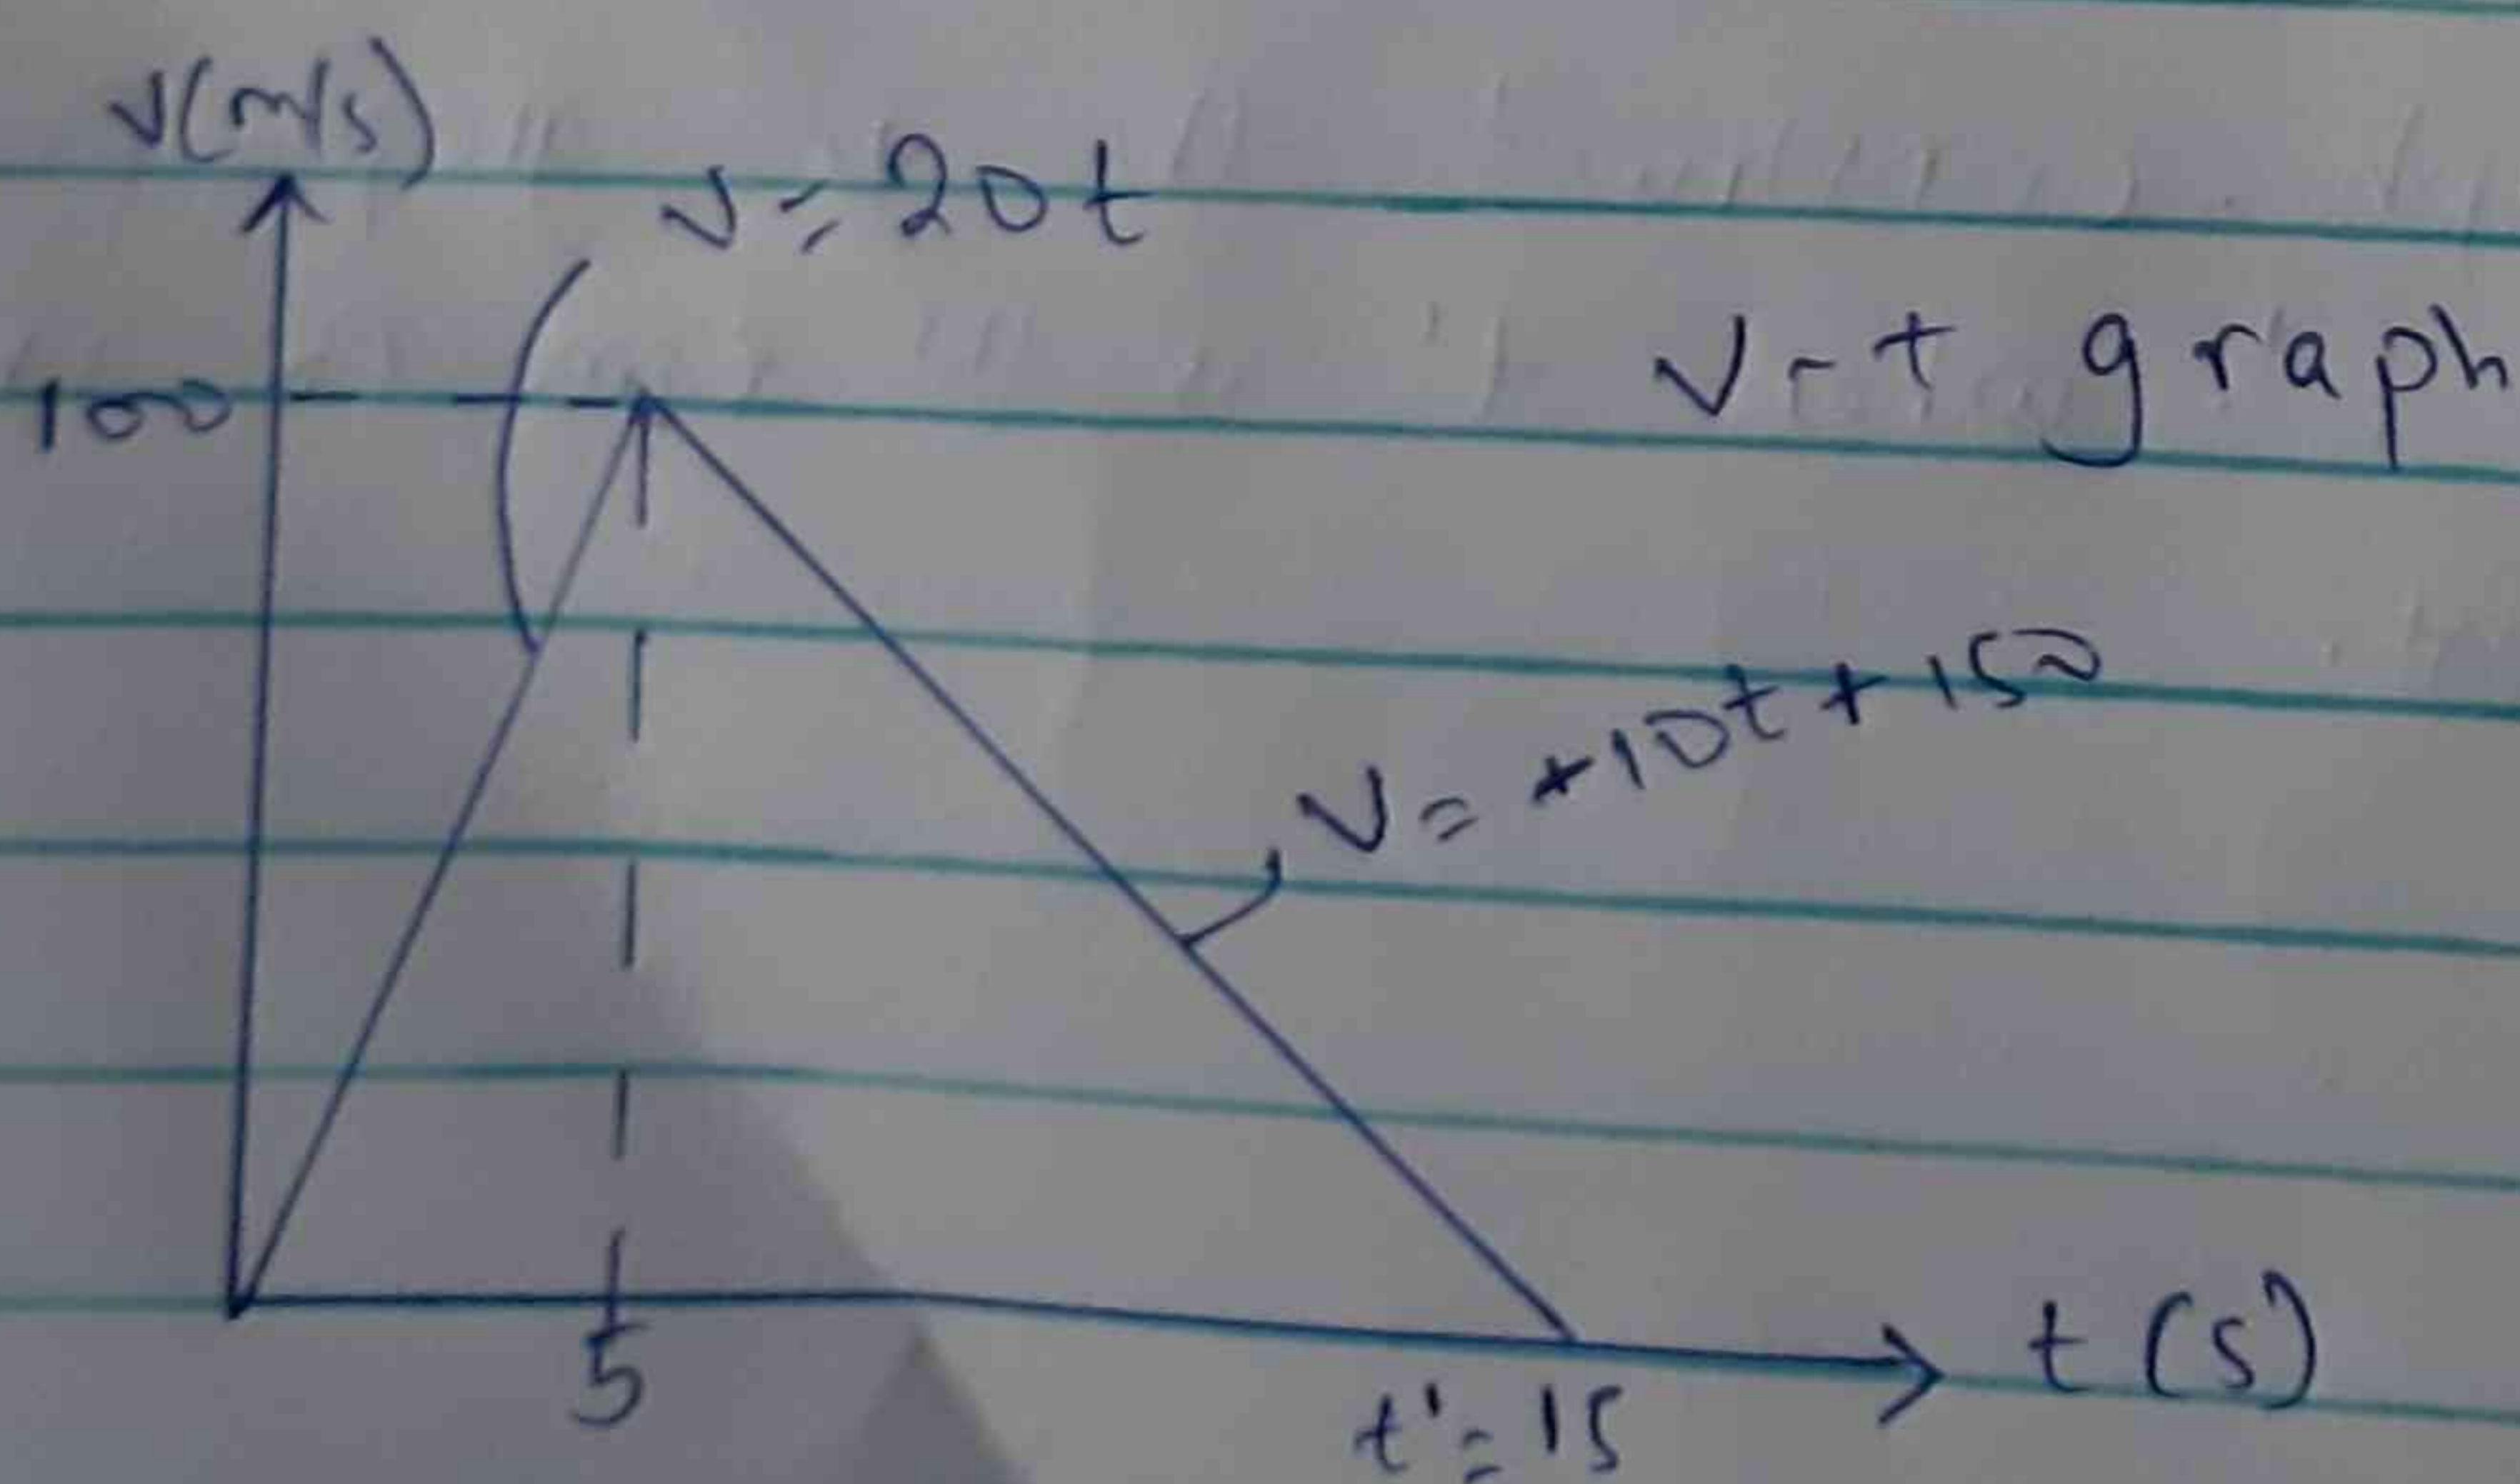 v(m/s)
v = 20t
100
v-t graph
v = -10t + 150
5
t' = 15
t (s)